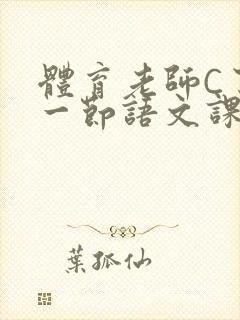 體育老師C
一節語文課
葉孤仙